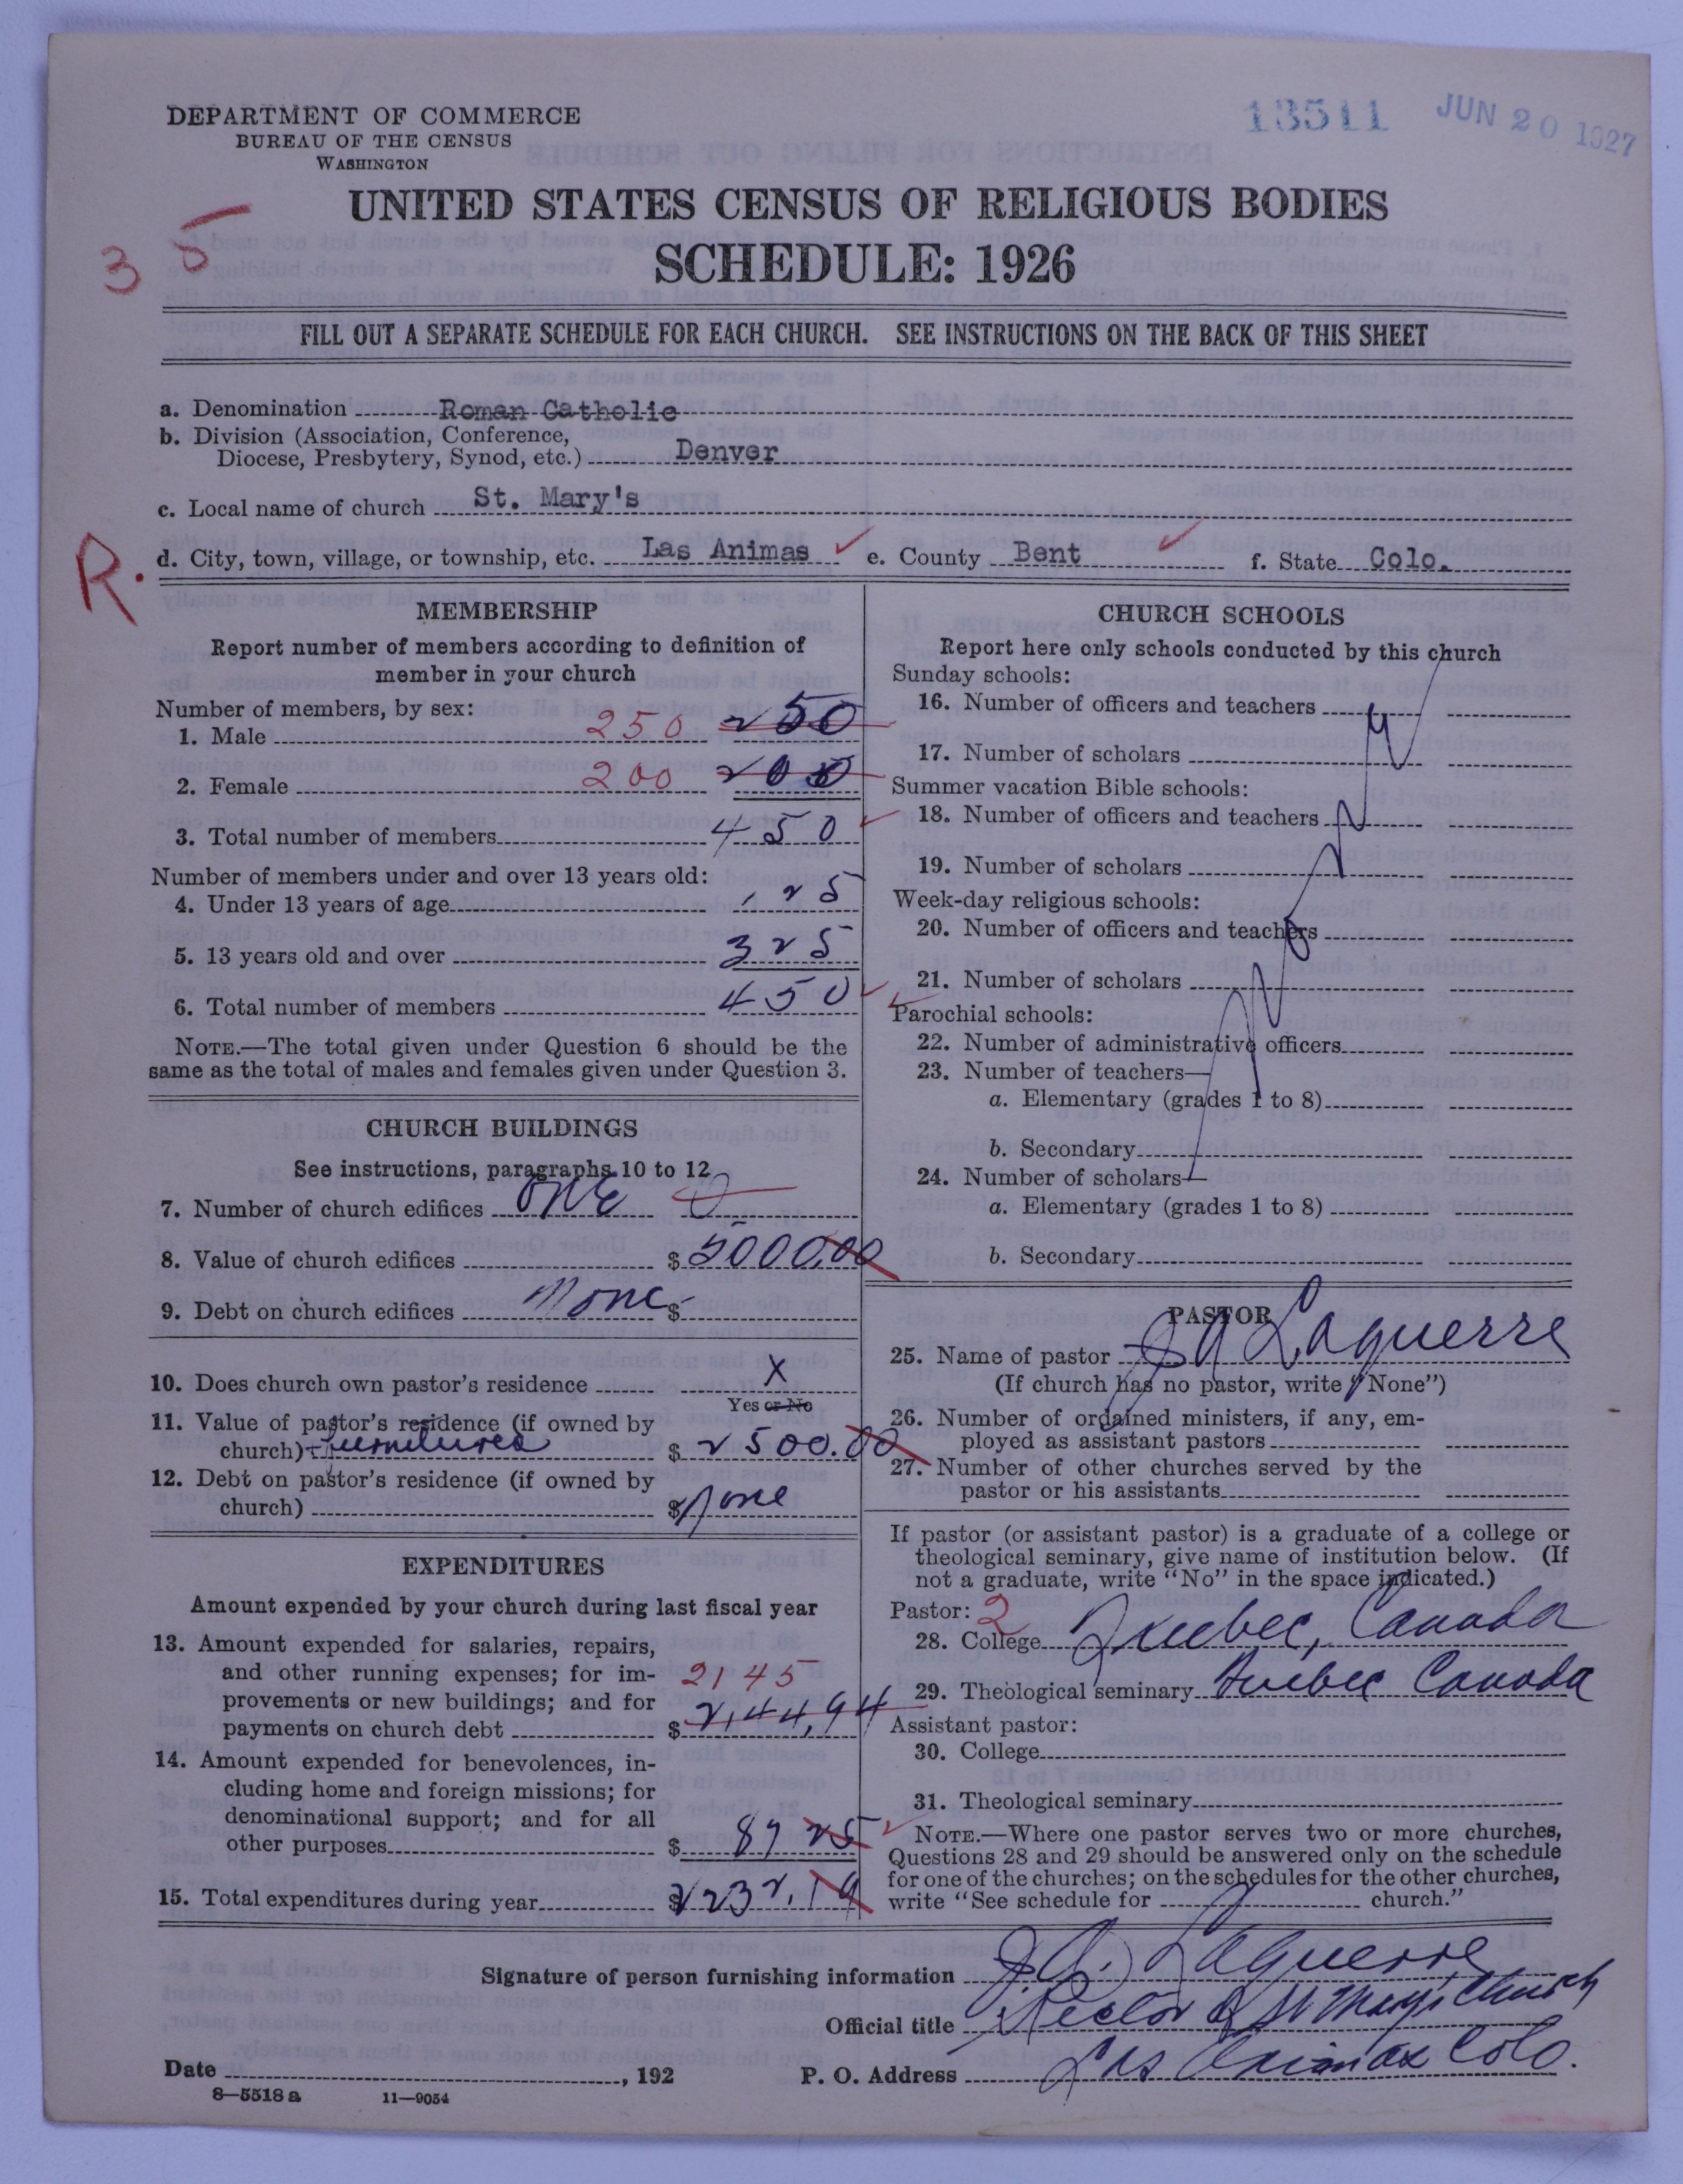 DEPARTMENT OF COMMERCE
BUREAU OF THE CENSUS
WASHINGTON
13511 JUN 20 1927
UNITED STATES CENSUS OF RELIGIOUS BODIES
SCHEDULE: 1926
35
FILL OUT A SEPARATE SCHEDULE FOR EACH CHURCH. SEE INSTRUCTIONS ON THE BACK OF THIS SHEET
a. Denomination Roman Catholic
b. Division (Association, Conference,
Diocese, Presbytery, Synod, etc.) Denver
c. Local name of church St. Mary's
R.
d. City, town, village, or township, etc. Las Animas e. County Bent f. State Colo.
MEMBERSHIP
Report number of members according to definition of
member in your church
Number of members, by sex:
1. Male 250 250
2. Female 200 200
3. Total number of members 450
Number of members under and over 13 years old:
4. Under 13 years of age 125
5. 13 years old and over 325
6. Total number of members 450
NOTE.—The total given under Question 6 should be the
same as the total of males and females given under Question 3.
CHURCH BUILDINGS
See instructions, paragraphs 10 to 12
7. Number of church edifices ONE
8. Value of church edifices $ 5000.00
9. Debt on church edifices None $
10. Does church own pastor's residence X
Yes or No
11. Value of pastor's residence (if owned by
church) + furnitures $ 2500.00
12. Debt on pastor's residence (if owned by
church) $ None
EXPENDITURES
Amount expended by your church during last fiscal year
13. Amount expended for salaries, repairs,
and other running expenses; for im-
provements or new buildings; and for
payments on church debt 2145 $ 2,144,94
14. Amount expended for benevolences, in-
cluding home and foreign missions; for
denominational support; and for all
other purposes $ 87 25
15. Total expenditures during year $ 2232,19
CHURCH SCHOOLS
Report here only schools conducted by this church
Sunday schools:
16. Number of officers and teachers
17. Number of scholars
Summer vacation Bible schools:
18. Number of officers and teachers
19. Number of scholars
Week-day religious schools:
20. Number of officers and teachers
21. Number of scholars
Parochial schools:
22. Number of administrative officers
23. Number of teachers—
a. Elementary (grades 1 to 8)
b. Secondary
24. Number of scholars—
a. Elementary (grades 1 to 8)
b. Secondary
PASTOR
25. Name of pastor J A Laguerre
(If church has no pastor, write "None")
26. Number of ordained ministers, if any, em-
ployed as assistant pastors
27. Number of other churches served by the
pastor or his assistants
If pastor (or assistant pastor) is a graduate of a college or
theological seminary, give name of institution below. (If
not a graduate, write "No" in the space indicated.)
Pastor: 2
28. College Quebec, Canada
29. Theological seminary Quebec Canada
Assistant pastor:
30. College
31. Theological seminary
NOTE.—Where one pastor serves two or more churches,
Questions 28 and 29 should be answered only on the schedule
for one of the churches; on the schedules for the other churches,
write "See schedule for church."
Signature of person furnishing information J. A. Laguerre
Official title Rector of St Mary's Church
Date , 192 P. O. Address Las Animas Colo.
8—5518 a 11—9054